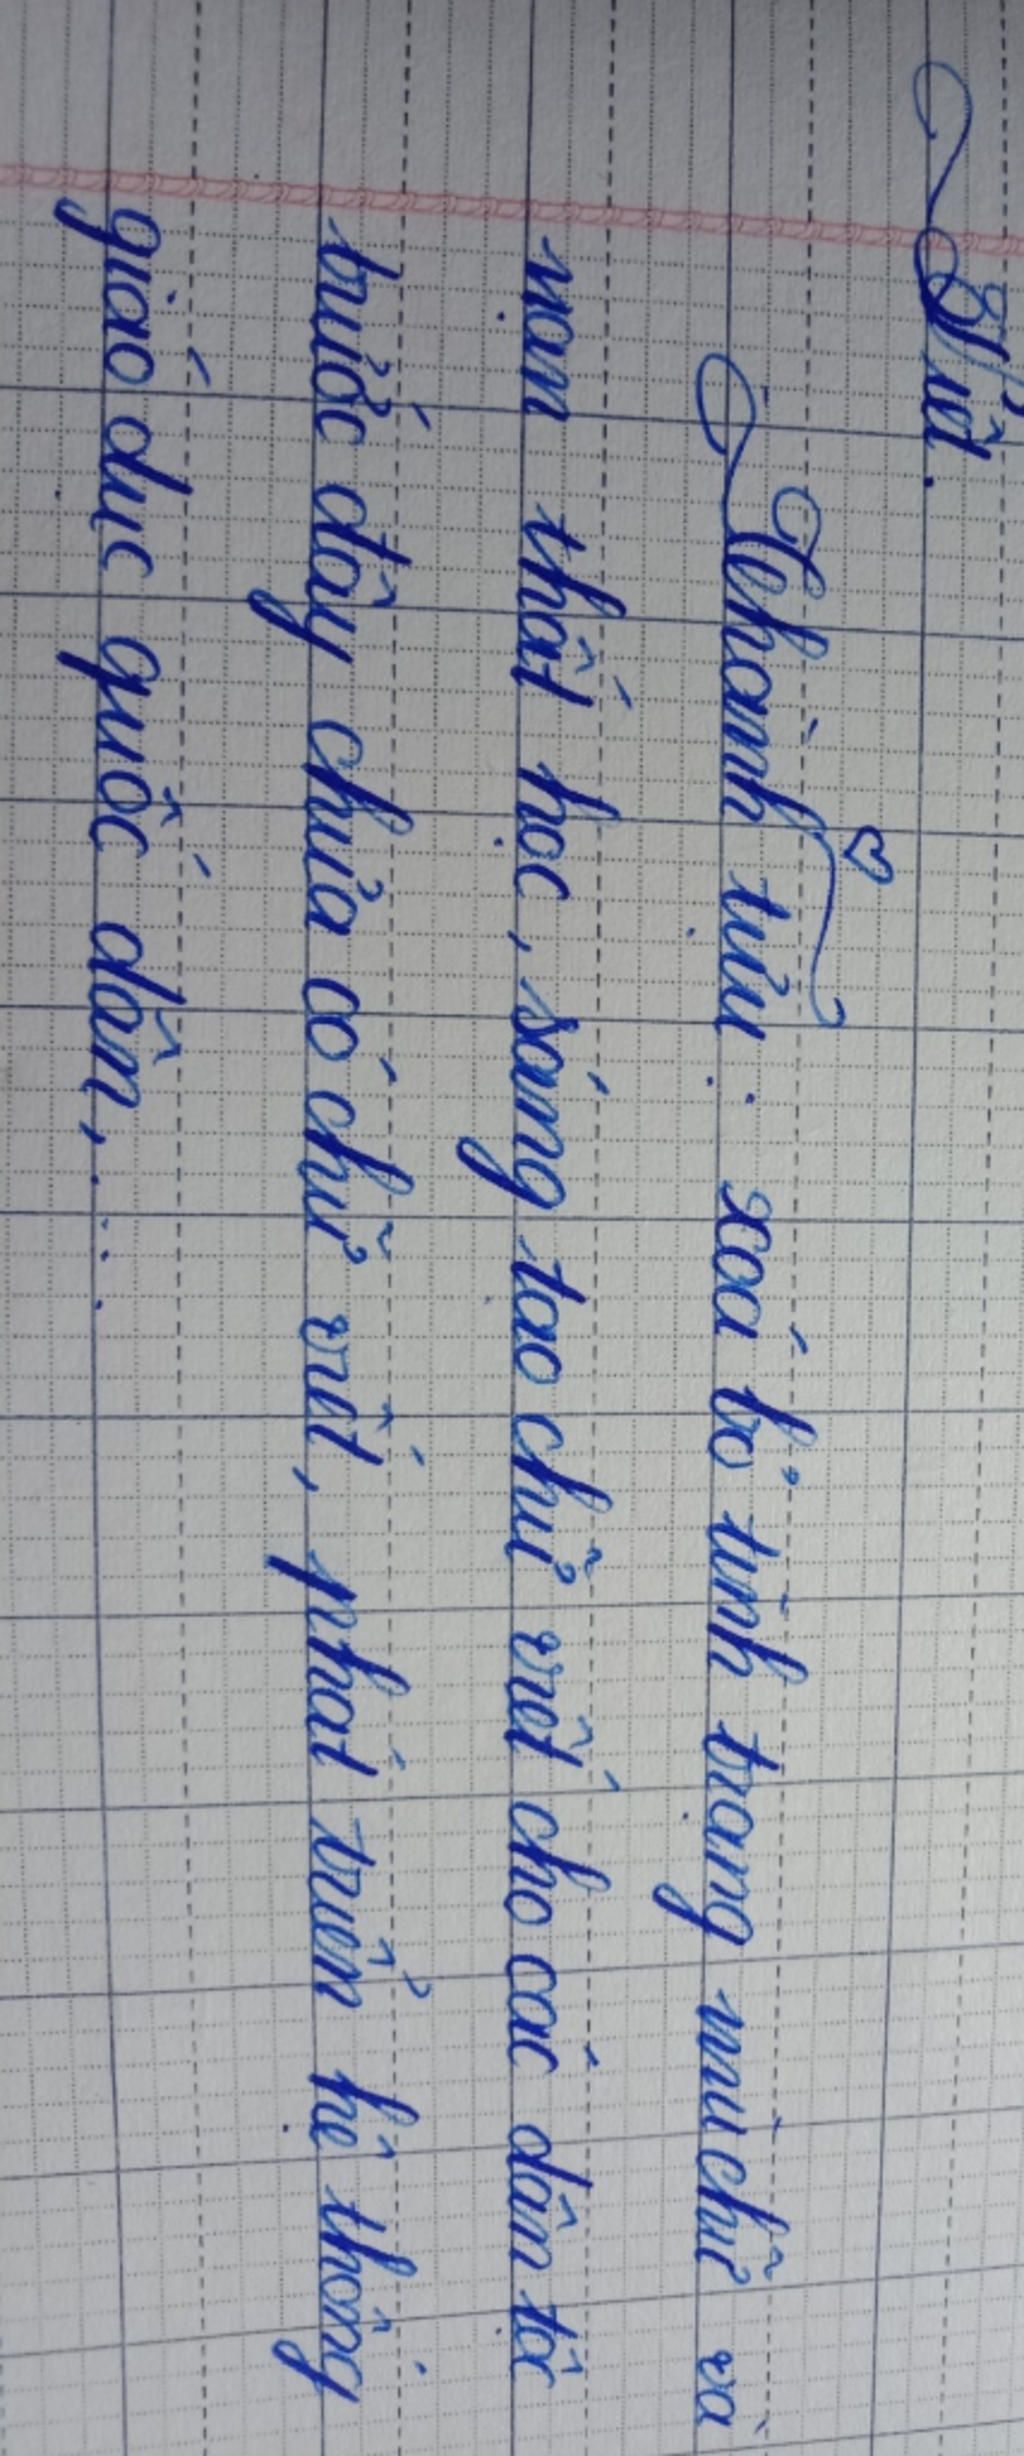 Thành tựu: xoá bỏ tình trạng mù chữ và
nạn thất học, sáng tạo chữ viết cho các dân tộc
trước đây chưa có chữ viết, phát triển hệ thống
giáo dục quốc dân,...